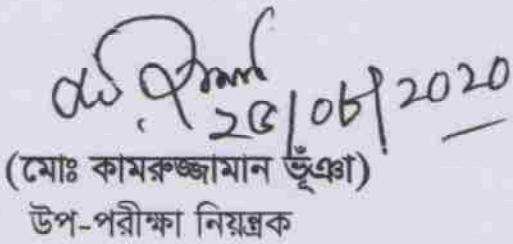 ২৫/০৮/২০২০
(মোঃ কামরুজ্জামান ভূঁঞা)
উপ-পরীক্ষা নিয়ন্ত্রক